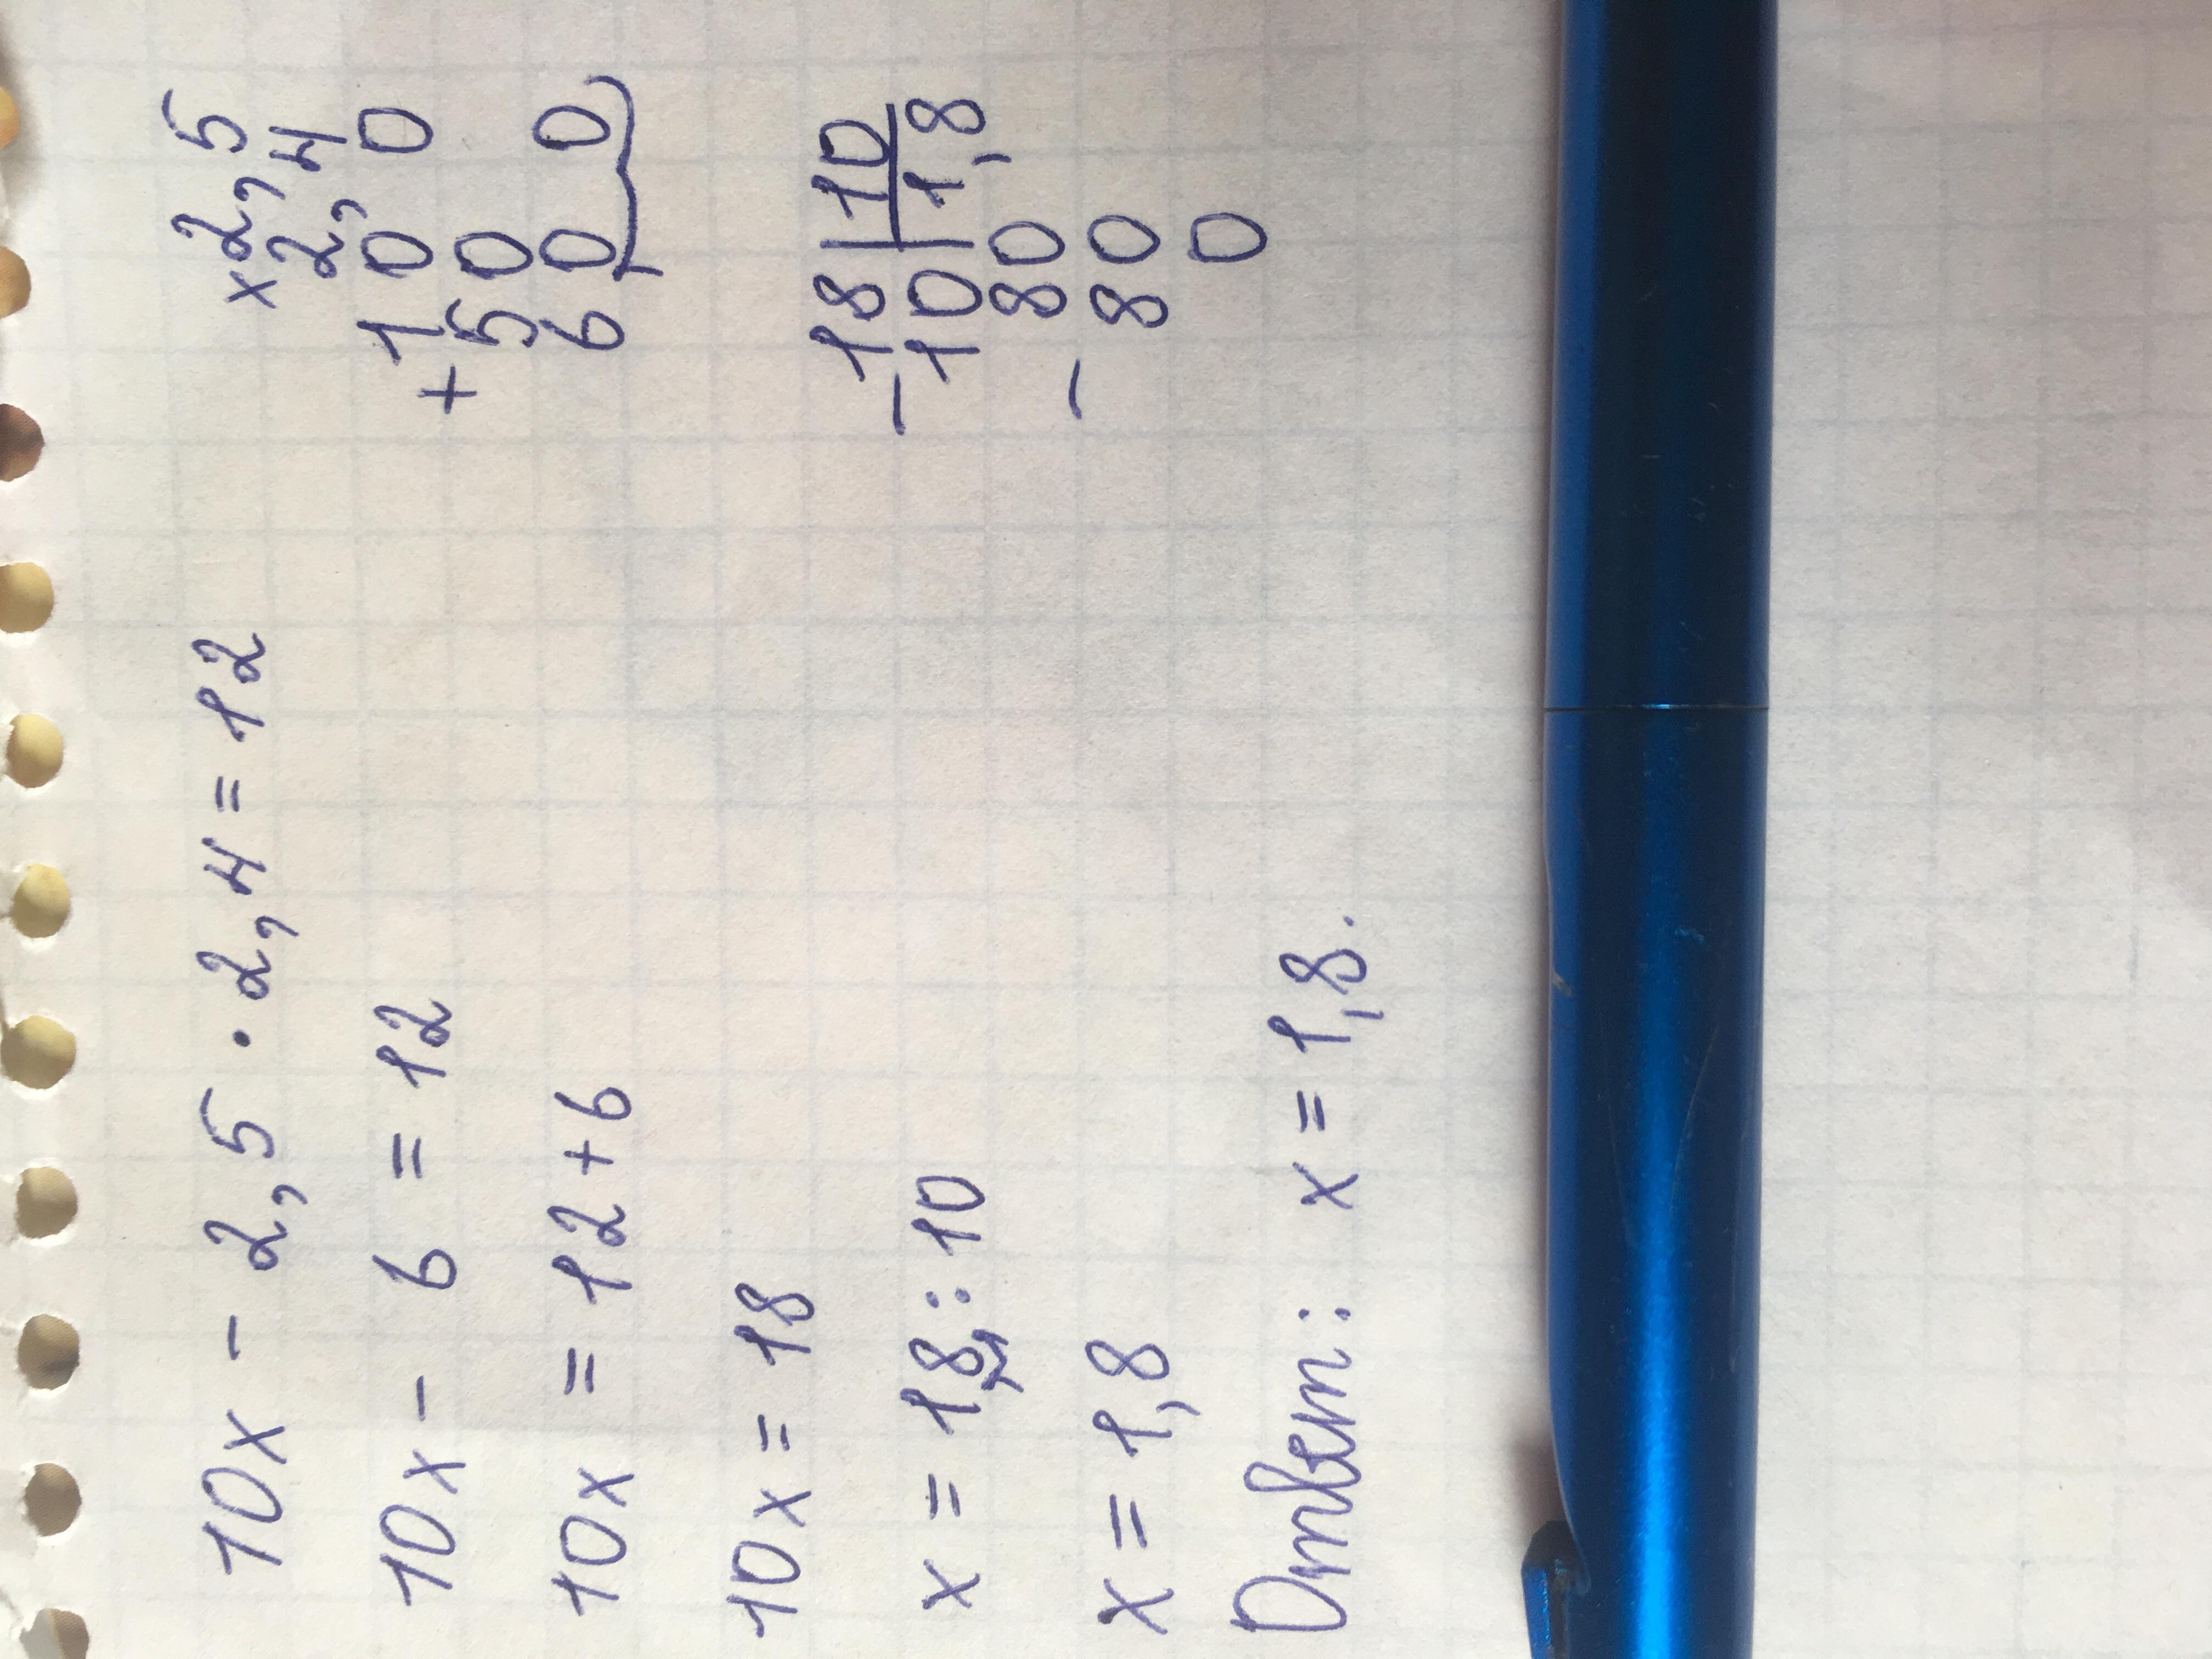 10x - 2,5 · 2,4 = 12
10x - 6 = 12
10x = 12 + 6
10x = 18
x = 18 : 10
x = 1,8
Ответ: x = 1,8.
× 2,5
2,4
1 0 0
+ 5 0
6 0 0
- 18 | 10
10 | 1,8
80
- 80
0